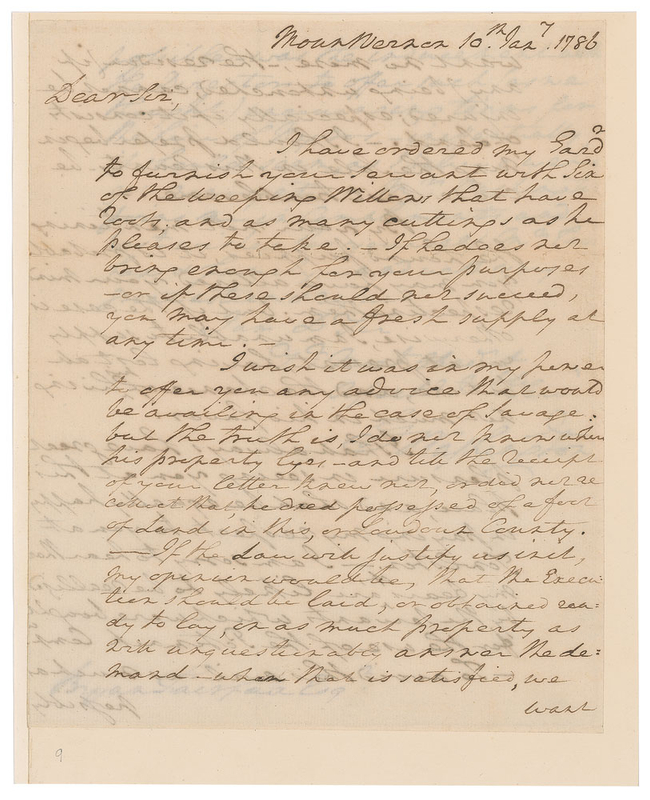 Mount Vernon 10th. Jany. 1786
Dear Sir,
I have ordered my Gardr
to furnish your Servant with Six
of the Weeping Willows that have
Roots, and as many cuttings as he
pleases to take. – If he does not
bring enough for your purposes
– or if these should not succeed,
you may have a fresh supply at
any time. –
I wish it was in my power
to offer you any advice that would
be availing in the case of Savage:
but the truth is, I do not know where
his property lyes – and till the receipt
of your letter knew not, or did not re
collect that, he died possessed of a foot
of Land in this, or Loudoun County.
– If the Law will justify us in it,
my opinion would be, that the Execu:
tion should be laid, or obtained rea:
dy to lay, on as much property as
will unquestionably answer the de:
mand – when that is satisfied, we
want
9